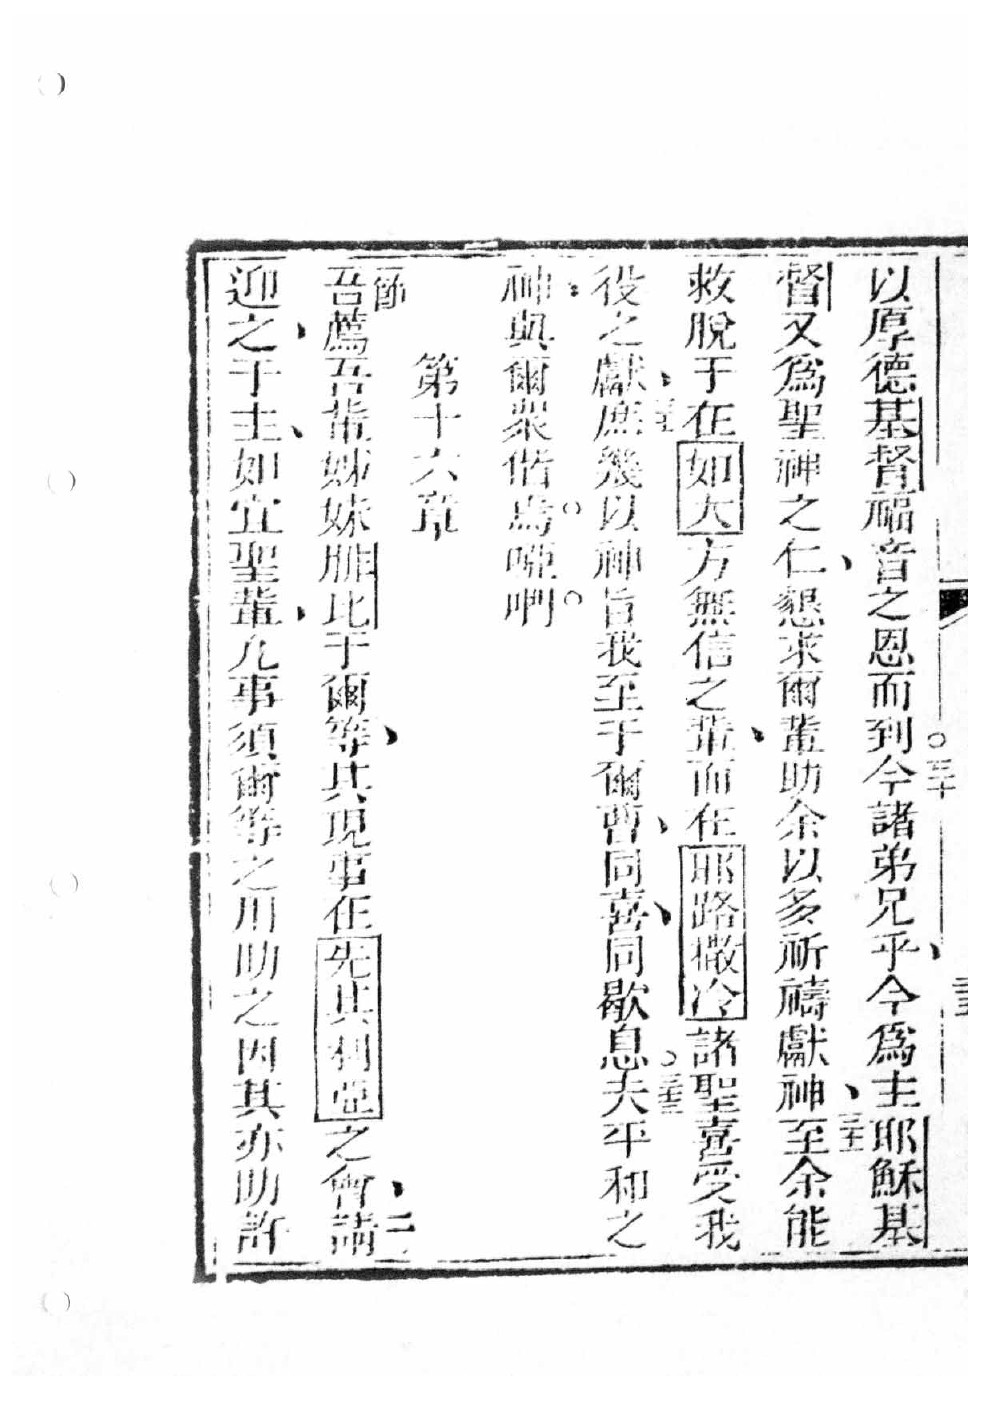 以厚德基督福音之恩而到○三十今諸弟兄乎、今爲主耶穌基
督又爲聖神之仁、懇求爾輩助余以多祈禱獻神、三十一至余能
救脫于在如大方無信之輩、而在耶路撒冷諸聖喜受我
役之獻、三十二庶幾以神旨我至于爾曹、同喜、同歇息○三十三夫平和之
神與爾衆偕焉○啞呵○
第十六章
一節吾薦吾輩姊妹腓比于爾等、其現事在先其利亞之會、二請
迎之、于主、如宜聖輩、凡事須爾等之用助之因其亦助許